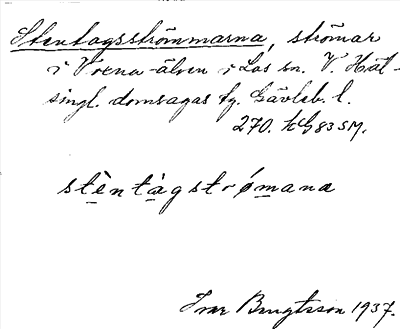 Stentagsströmmarna, strömar
i Voxna-älven i Los sn. V. Häl-
singl. domsagas tg. Gävleb. l.
270. HG 83 SM.
stèntàgstrømana
Ivar Bengtsson 1937.